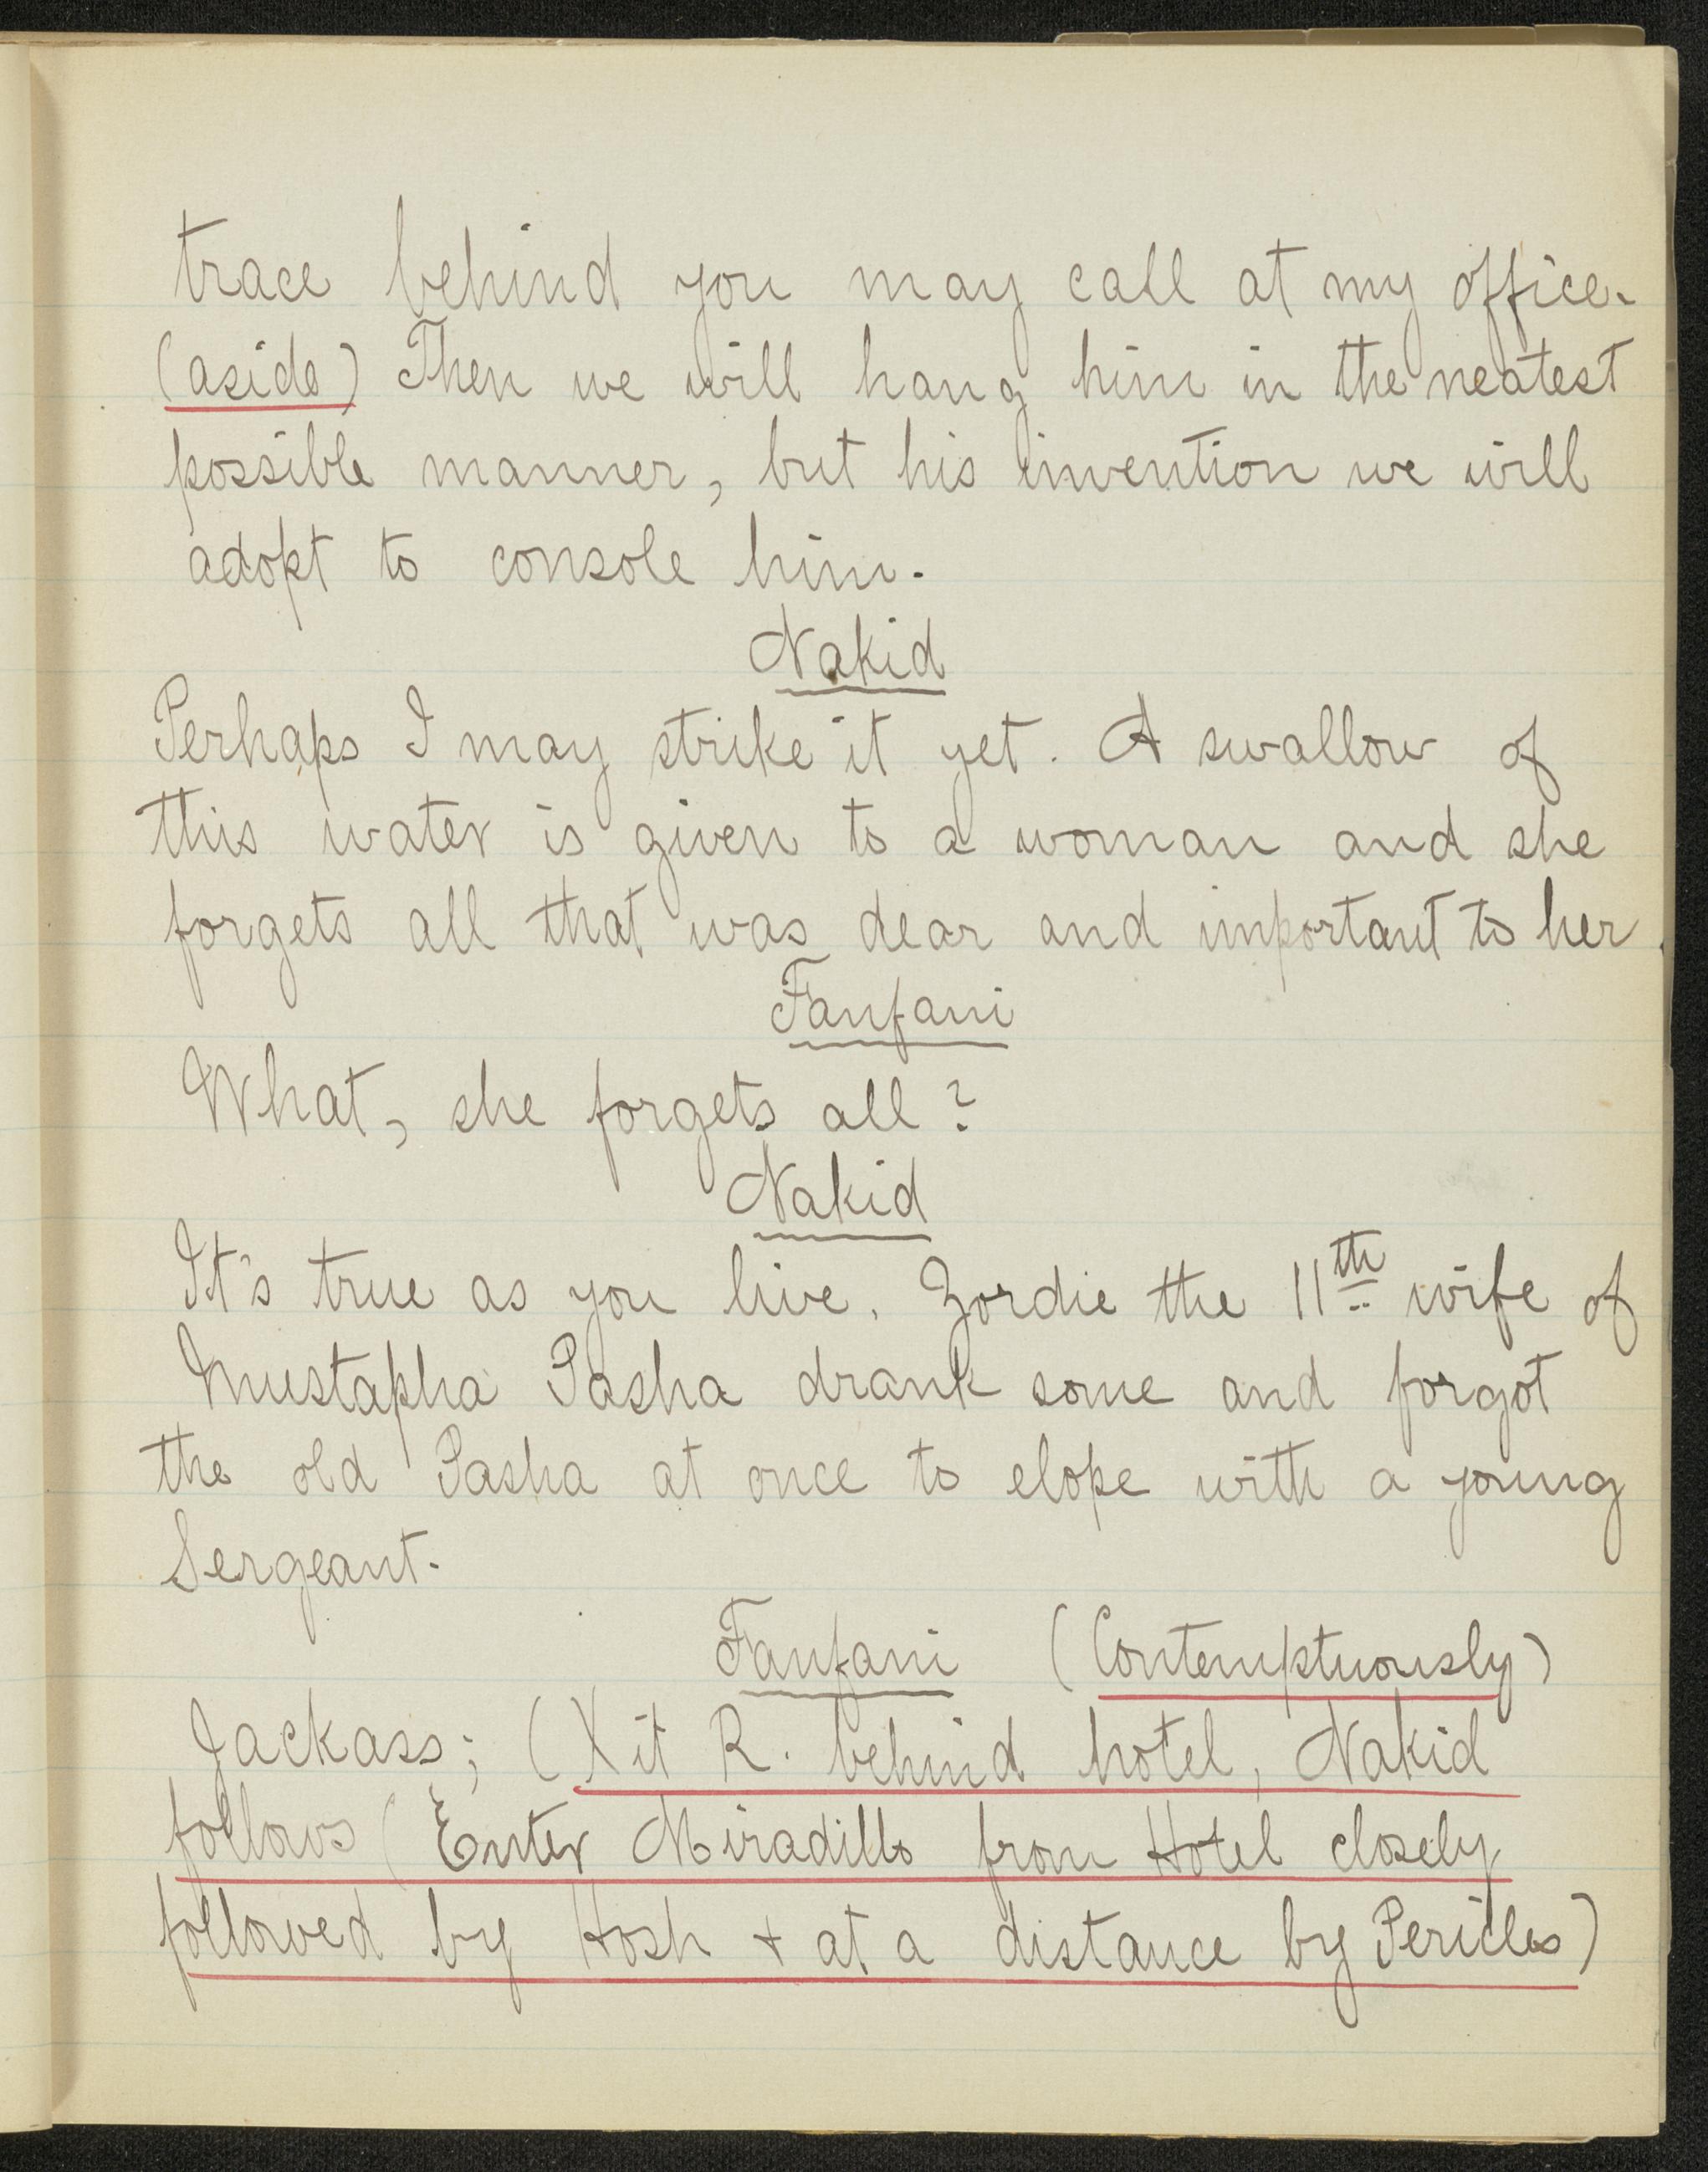 trace behind you may call at my office.
(aside) Then we will hang him in the neatest
possible manner, but his invention we will
adopt to console him.
Nakid
Perhaps I may strike it yet. A swallow of
this water is given to a woman and she
forgets all that was dear and important to her.
Fanfani
What, she forgets all?
Nakid
It's true as you live. Zordie the 11th wife of
Mustapha Pasha drank some and forgot
the old Pasha at once to elope with a young
Sergeant.
Fanfani (Contemptuously)
Jackass; (Xit R. behind hotel, Nakid
follows (Enter Miradillo from Hotel closely
followed by Hosh + at a distance by Pericles)